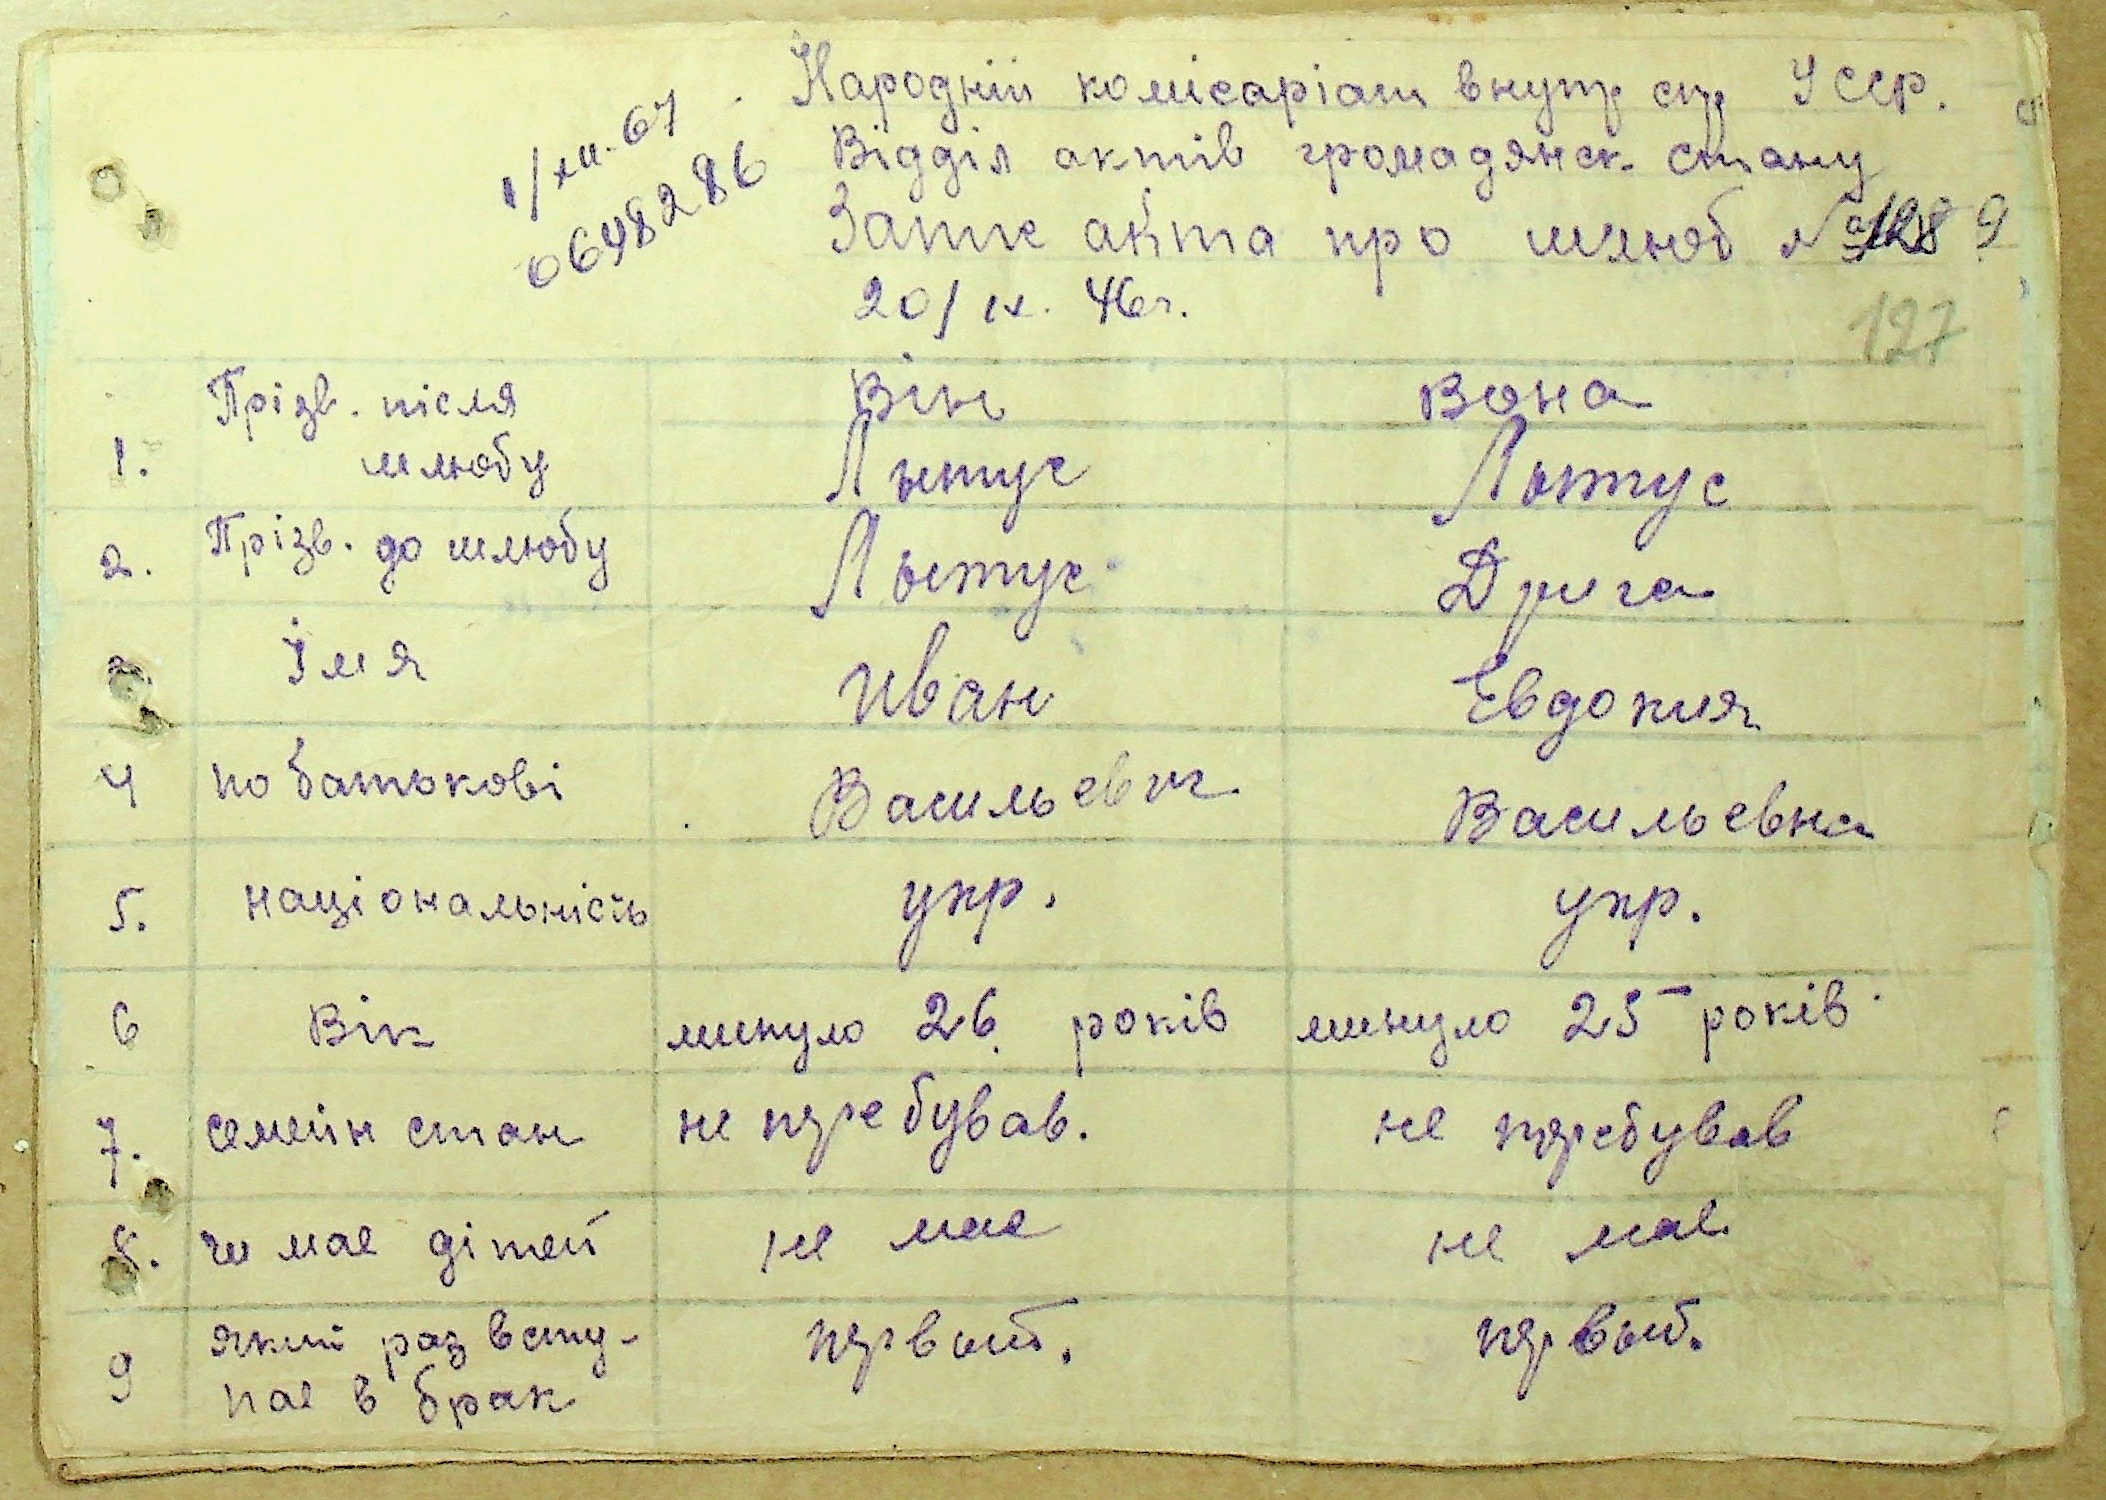 Народній комісаріат внутр спр УССР.
Відділ актів громадянск. стану
Запис акта про шлюб № 9
20/IX. 46 г.
1/XII. 67
0698286
127
Він Вона
1. Прізв. після шлюбу Лытус Лытус
2. Прізв. до шлюбу Лытус Дрига
3. Імя Иван Евдокия
4 по батькові Васильевич Васильевна
5. національність укр. укр.
6 Вік минуло 26 років минуло 25 років
7. семейн стан не перебував. не перебував
8. чи має дітей не має не має
9 який раз всту-
пає в брак первый. первый.